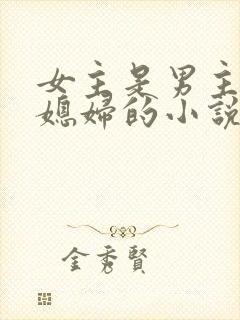 女主是男主
媳婦的小說
金秀賢